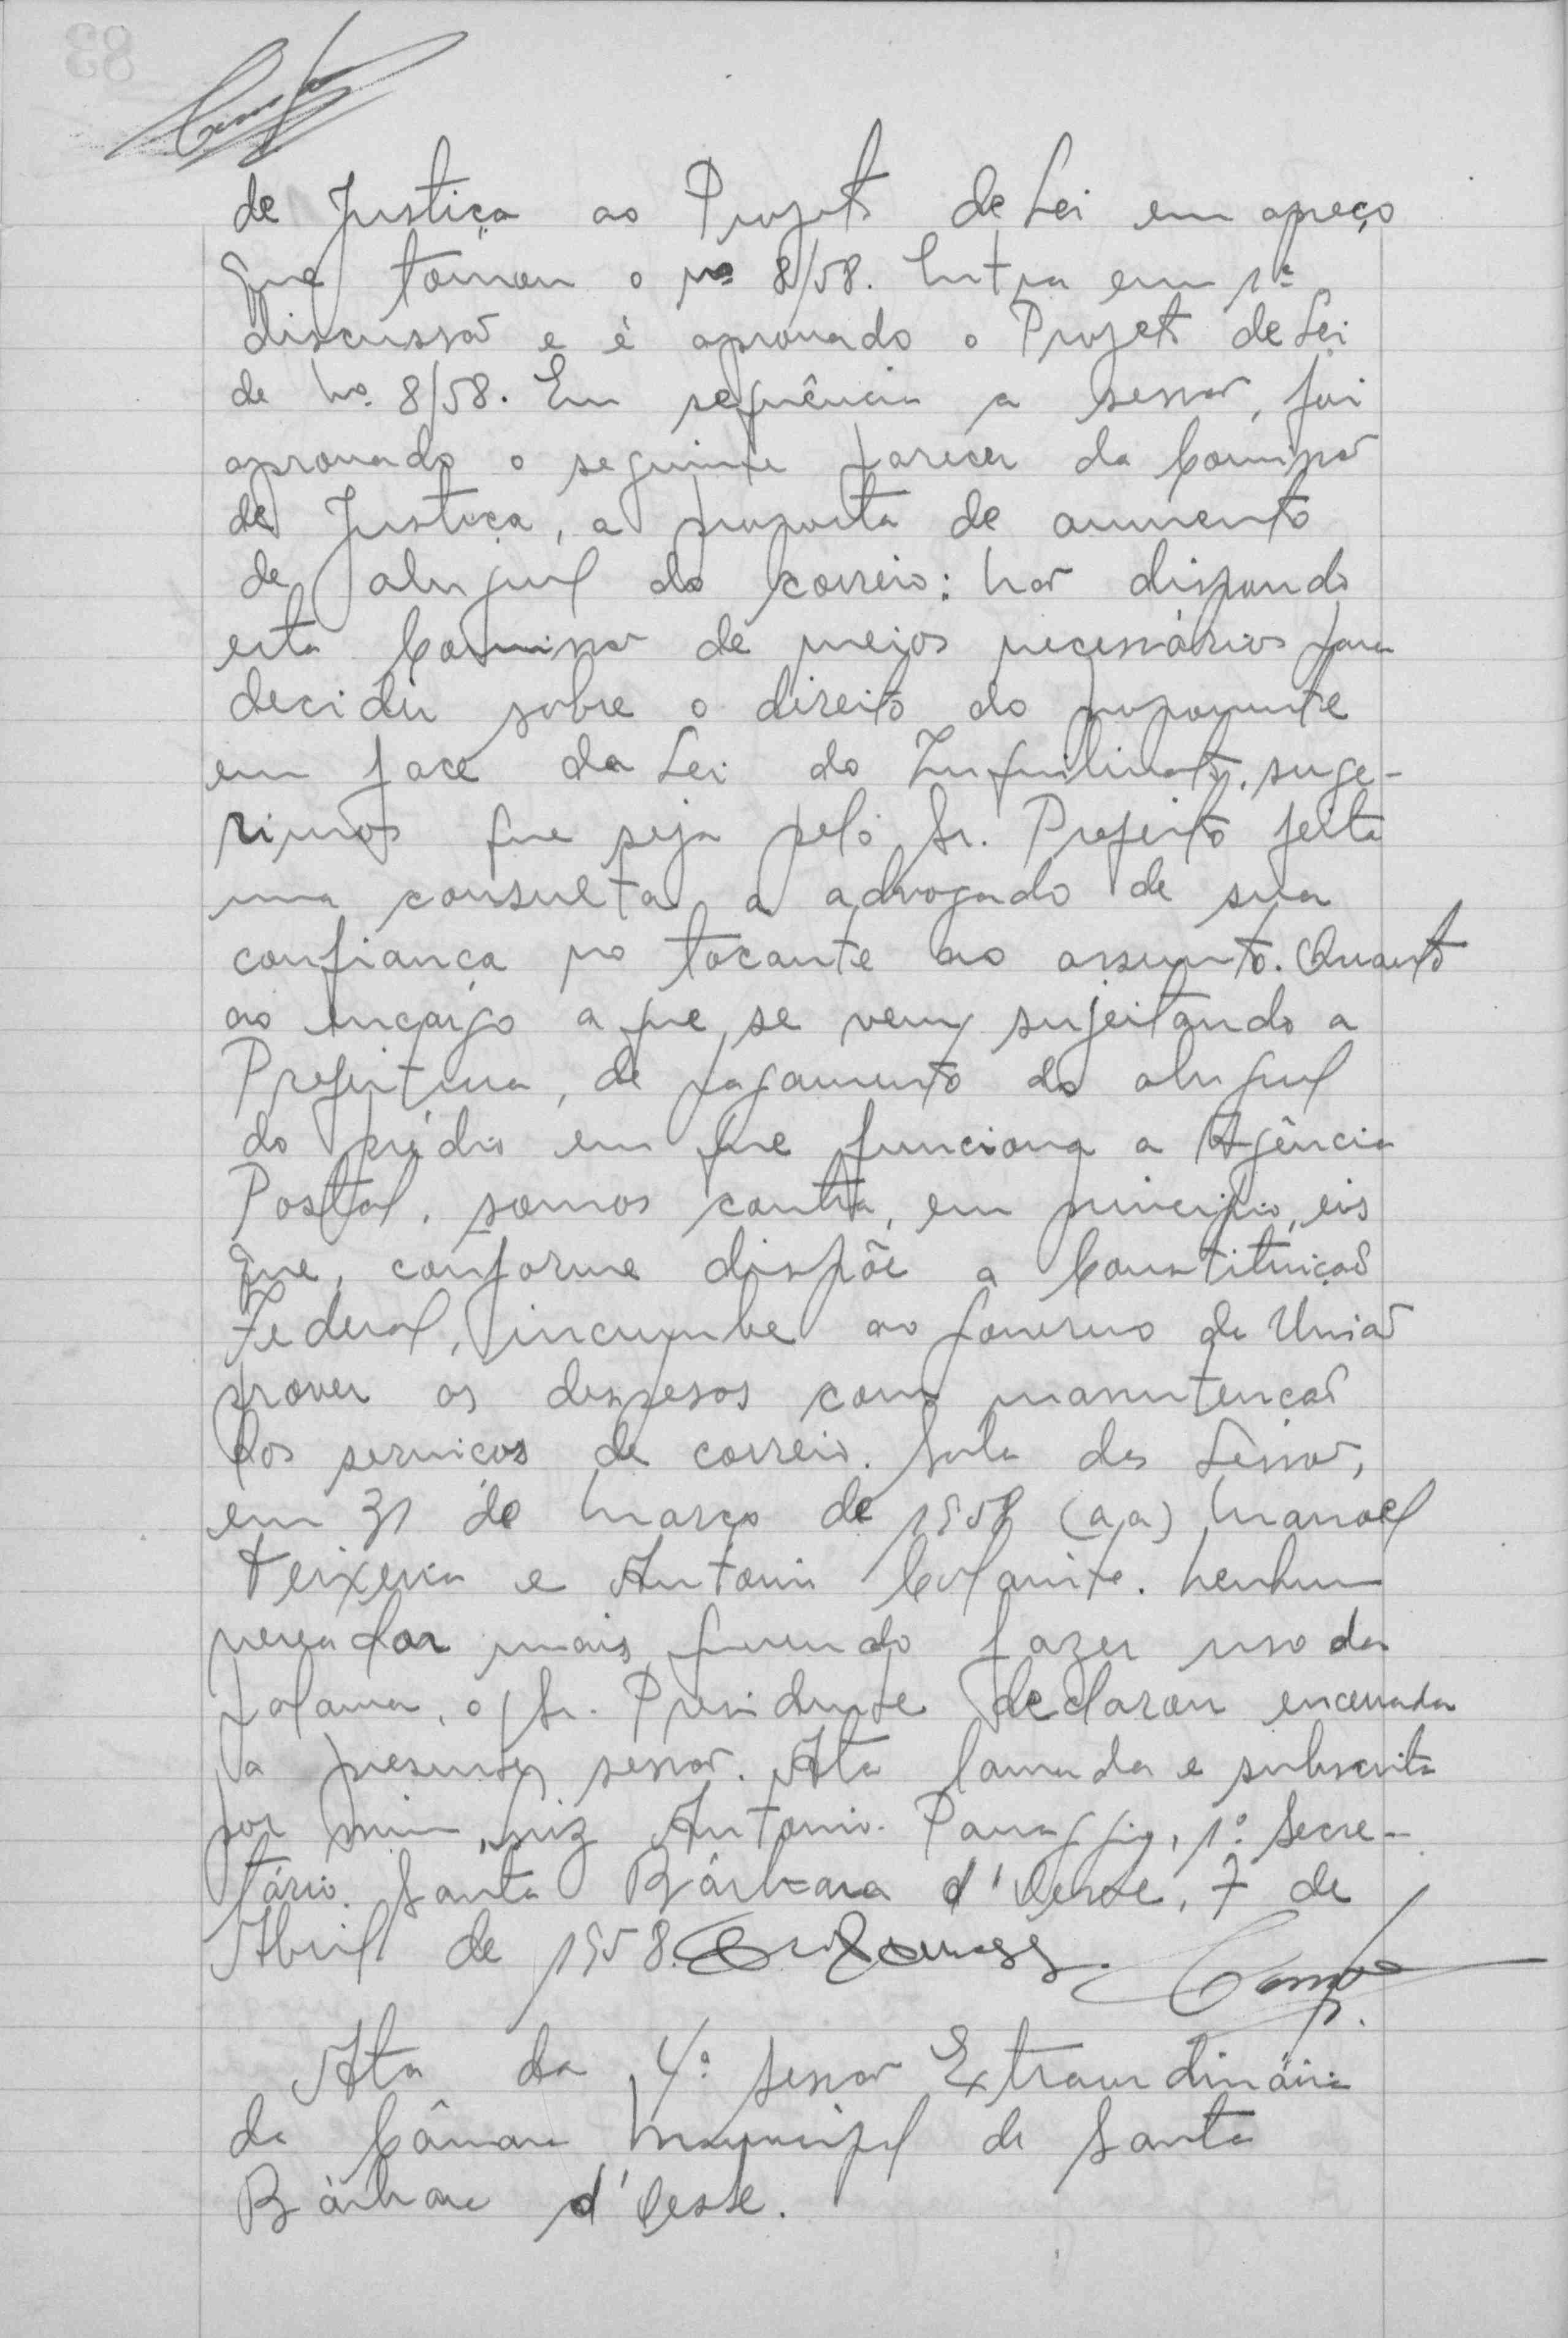 de Justiça ao Projeto de Lei em apreço
que tomou o nº 8/58. Entra em 1ª
discussão e é aprovado o Projeto de Lei
de nº 8/58. Em sequência a sessão, foi
aprovado o seguinte parecer da Comissão
de Justiça, a proposta de aumento
de aluguel do correio: Não dispondo
esta Comissão de meios necessários para
decidir sobre o direito do proponente
em face da Lei do Inquilinato, suge-
rimos que seja pelo Sr. Prefeito feita
uma consulta a advogado de sua
confiança no tocante ao assunto. Quanto
ao encargo a que se vem sujeitando a
Prefeitura, de pagamento do aluguel
do prédio em que funciona a Agência
Postal, somos contra, em principio, eis
que, conforme dispõe a Constituição
Federal, incumbe ao Governo da União
prover as despesas com manutenção
dos serviços de correio. Sala das Sessão,
em 31 de Março de 1958 (a,a) Manoel
Teixeira e Antonio . Nenhum
vereador mais querendo fazer uso da
palavra, o Sr. Presidente declarou encerrada
a presente sessão. Ata lavrada e subscrita
por mim, Luiz Antonio Panaggio, 1º Secre-
tário. Santa Bárbara d'Oeste, 7 de
Abril de 1958.
Ata da 4ª Sessão Extraordinária
da Câmara Municipal de Santa
Bárbara d'Oeste.
83